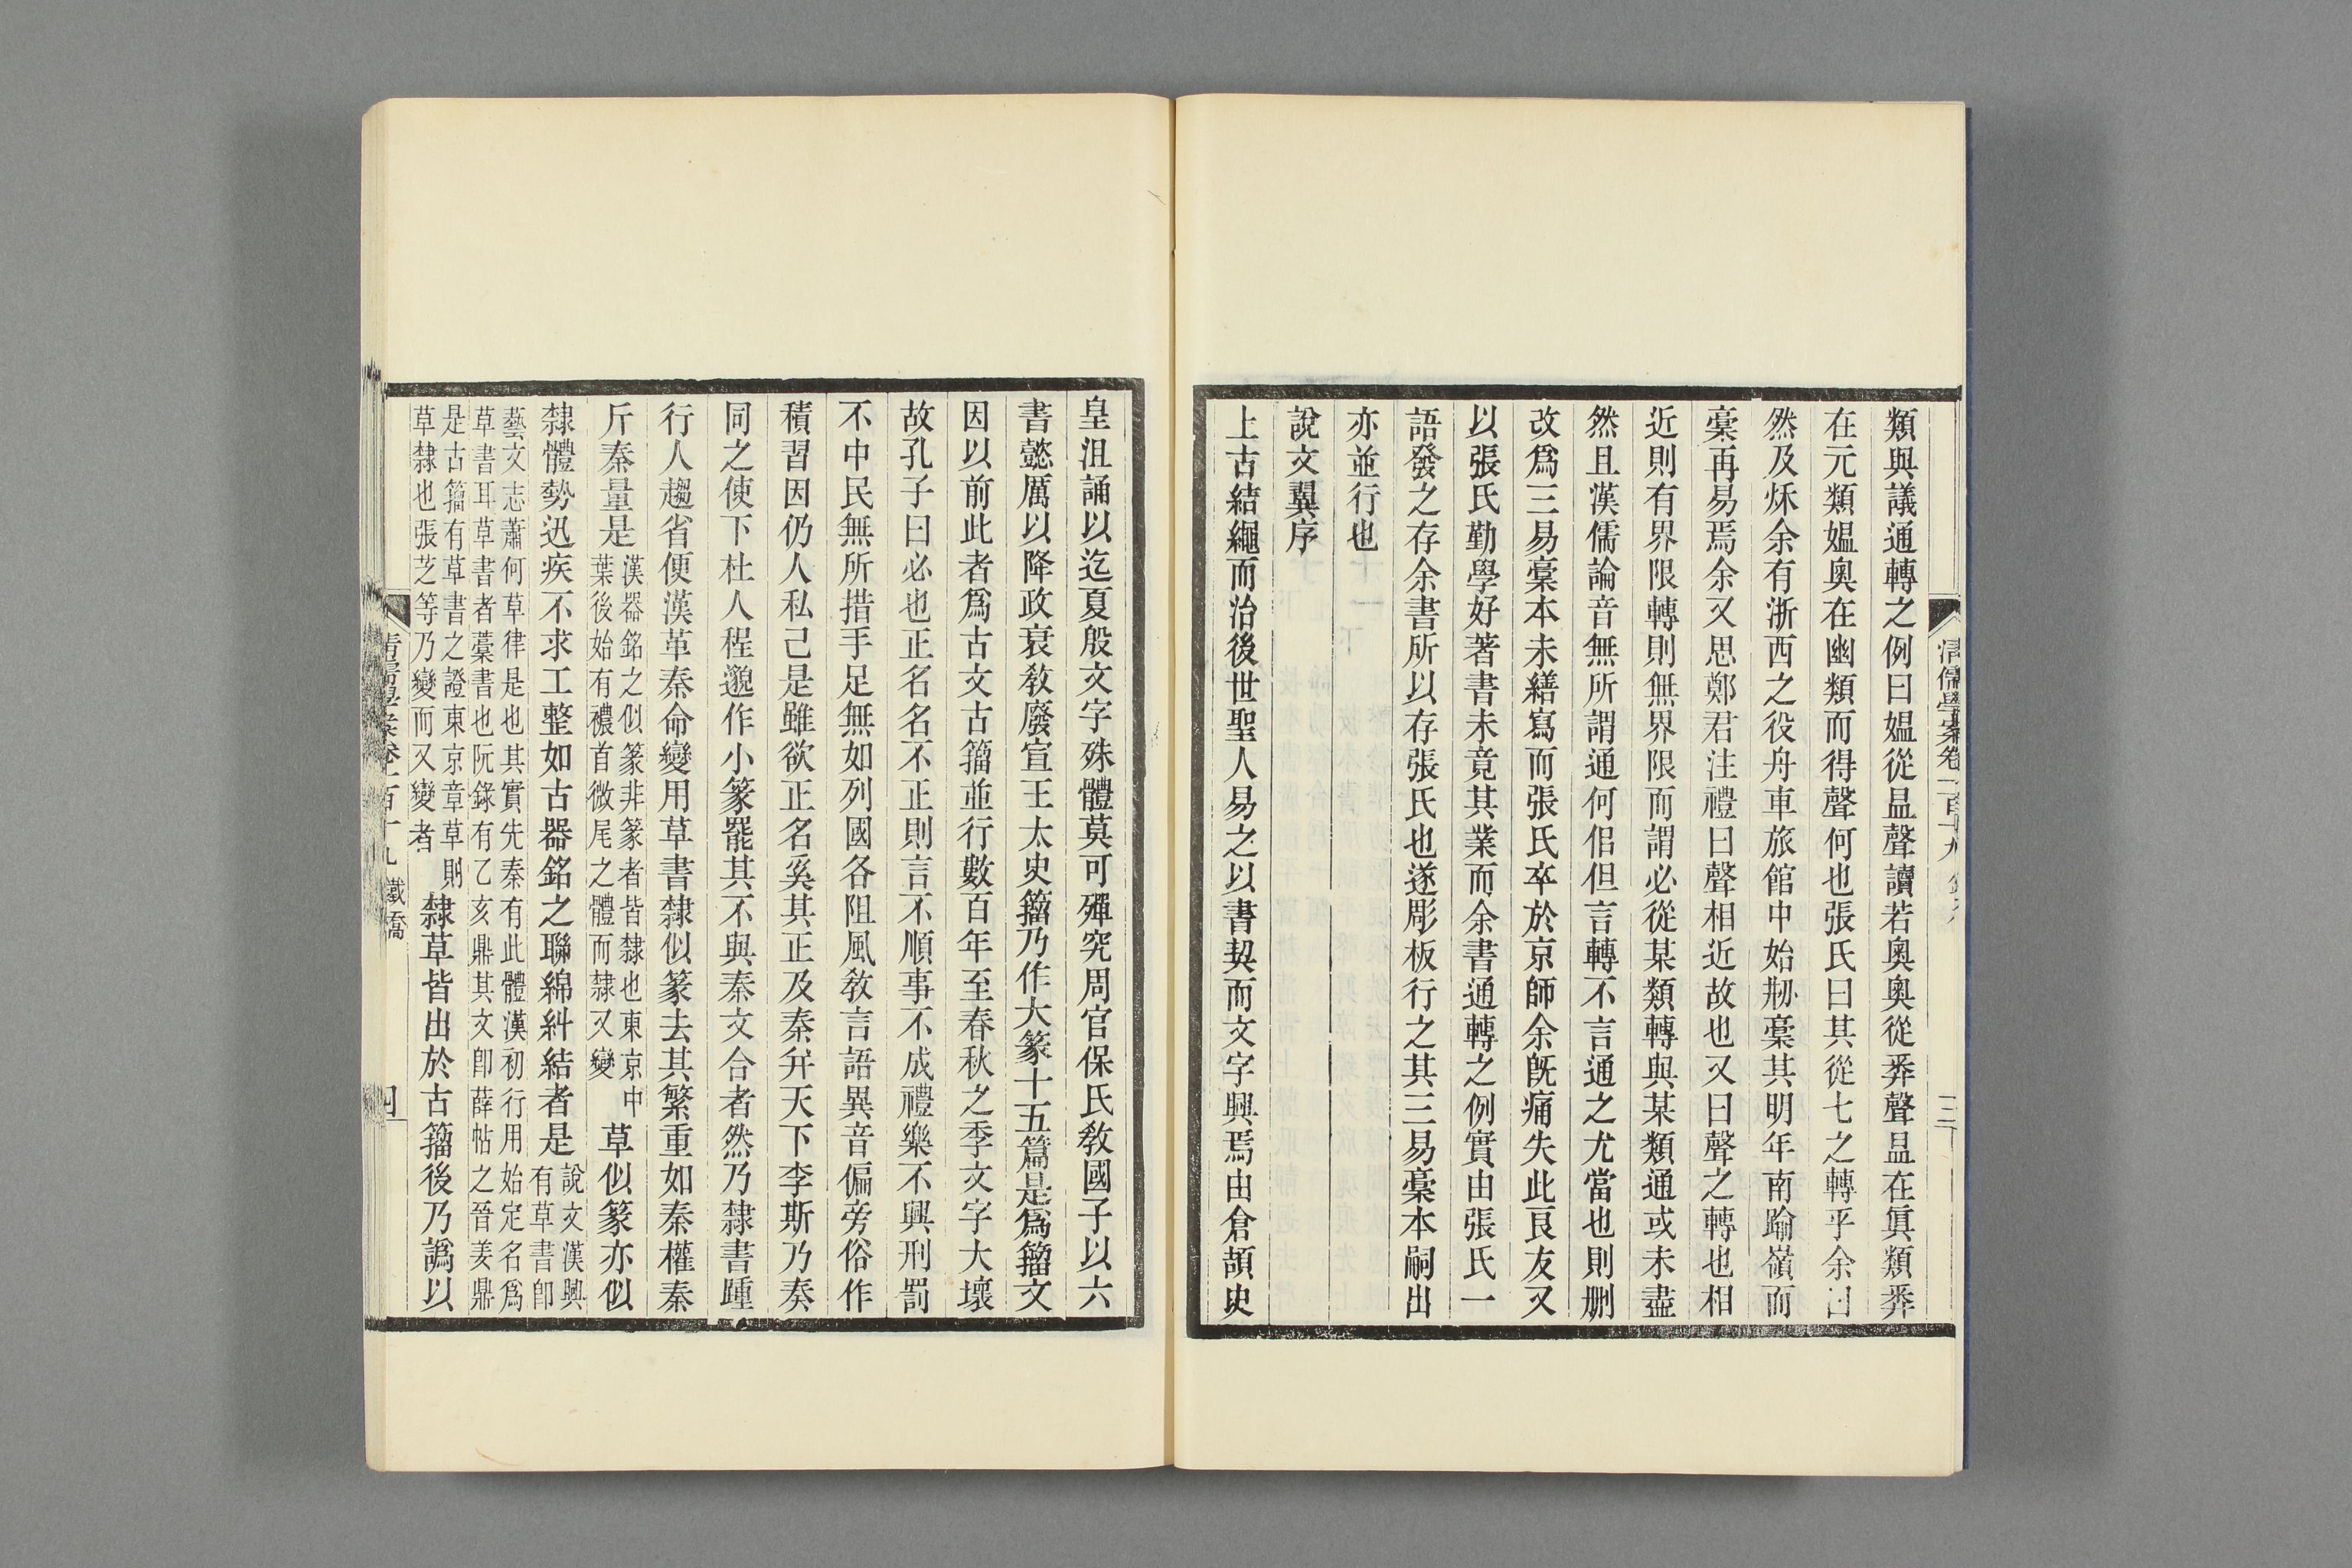 類與議通轉之例曰媼從昷聲讀若奧奧從𢍏聲昷在眞類𢍏
在元類媼奧在幽類而得聲何也張氏曰其從七之轉乎余曰
然及秌余有浙西之役舟車旅館中始刱稾其明年南踰嶺而
稾再易焉余又思鄭君注禮曰聲相近故也又曰聲之轉也相
近則有界限轉則無界限而謂必從某類轉與某類通或未盡
然且漢儒論音無所謂通何佀但言轉不言通之尤當也則刪
改爲三易稾本未繕寫而張氏卒於京師余旣痛失此良友又
以張氏勤學好著書未竟其業而余書通轉之例實由張氏一
語發之存余書所以存張氏也遂彫板行之其三易稾本嗣出
亦並行也
說文翼序
上古結繩而治後世聖人易之以書契而文字興焉由倉頡史
皇沮誦以迄夏殷文字殊體莫可殫究周官保氏敎國子以六
書懿厲以降政衰敎廢宣王太史籒乃作大篆十五篇是爲籒文
因以前此者爲古文古籒並行數百年至春秋之季文字大壞
故孔子曰必也正名名不正則言不順事不成禮樂不興刑罰
不中民無所措手足無如列國各阻風敎言語異音偏旁俗作
積習因仍人私己是雖欲正名奚其正及秦幷天下李斯乃奏
同之使下杜人程邈作小篆罷其不與秦文合者然乃隸書踵
行人趨省便漢革秦命變用草書隸似篆去其繁重如秦權秦
斤秦量是漢器銘之似篆非篆者皆隸也東京中
葉後始有禮首微尾之體而隸又變草似篆亦似
隸體勢迅疾不求工整如古器銘之聯綿糾結者是說文漢興
有草書卽
藝文志蕭何草律是也其實先秦有此體漢初行用始定名爲
草書耳草書者稾書也阮錄有乙亥鼎其文卽薛帖之晉姜鼎
是古籒有草書之證東京章草則
草隸也張芝等乃變而又變者隸草皆出於古籒後乃譌以
清儒學案卷一百十九 鐵橋
四
清儒學案卷一百十九
三